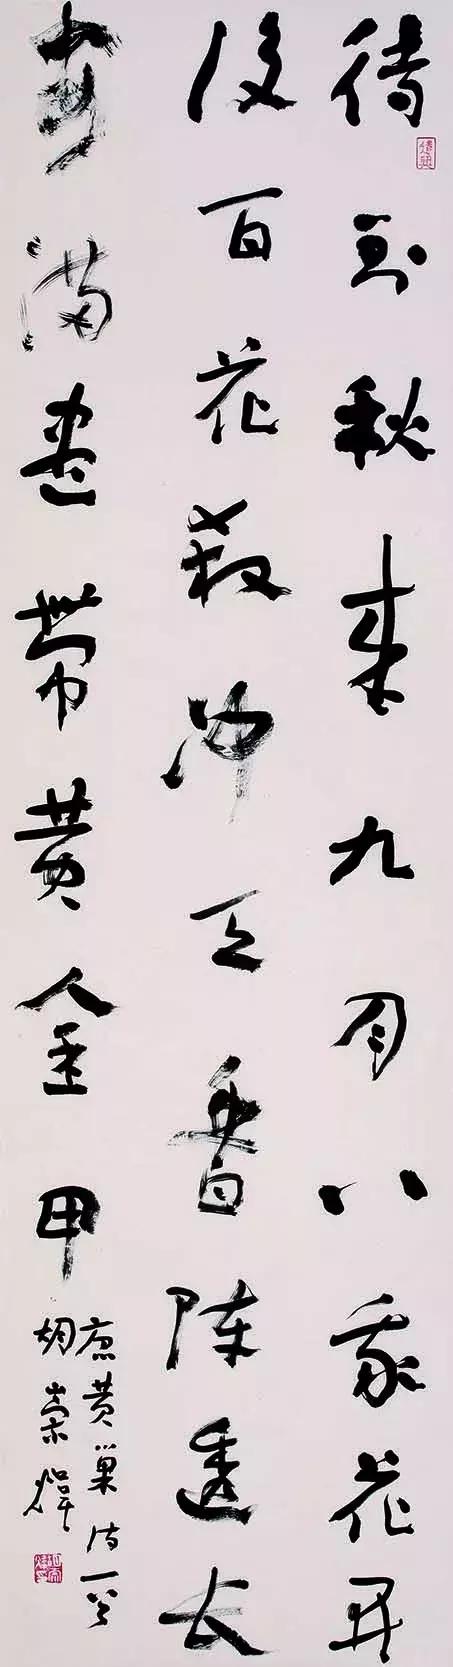 待到秋来九月八我花开
後百花殺冲天香陣透长
安满盡帶黄金甲
唐黄巢诗一首
胡崇煒